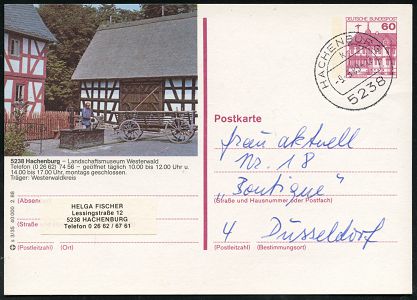 DEUTSCHE BUNDESPOST
60
HACHENBURG
5238
5238 Hachenburg – Landschaftsmuseum Westerwald
Telefon (0 26 62) 74 56 – geöffnet täglich 10.00 bis 12.00 Uhr u.
14.00 bis 17.00 Uhr, montags geschlossen.
Träger: Westerwaldkreis
Postkarte
frau aktuell
Nr. 18
„Boutique"
(Straße und Hausnummer oder Postfach)
4 Düsseldorf
(Postleitzahl) (Bestimmungsort)
(Absen
HELGA FISCHER
Lessingstraße 12
5238 HACHENBURG
Telefon 0 26 62 / 67 61
(Straße
(Postleitzahl) (Ort)